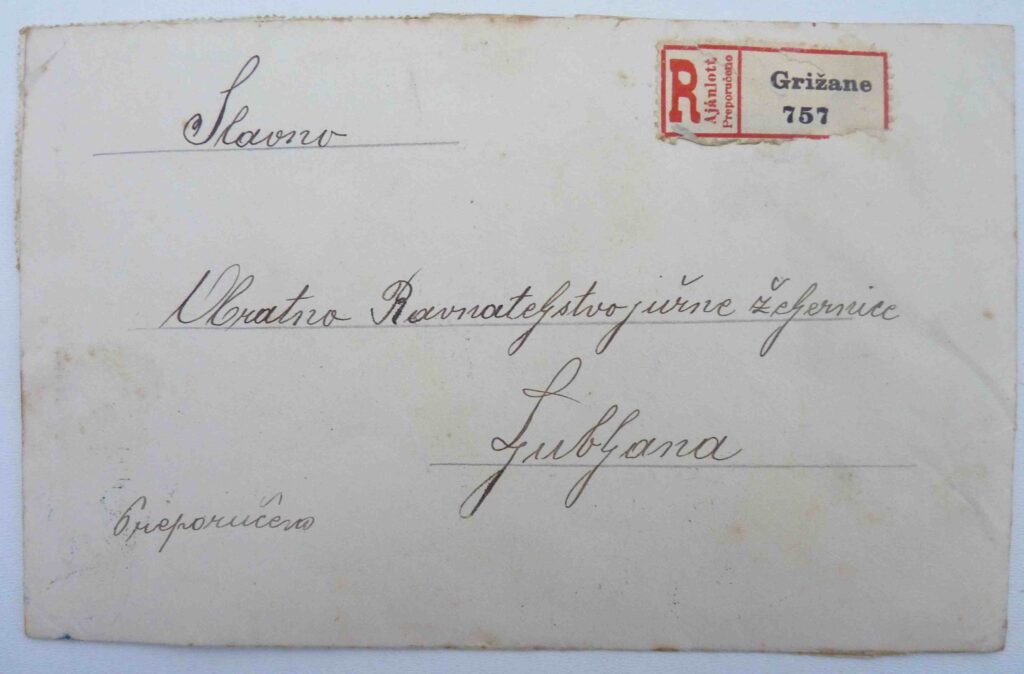 Slavno
R Ajánlott Preporučeno Grižane
757
Obratno Ravnateljstvo južne željeznice
Ljubljana
Preporučeno